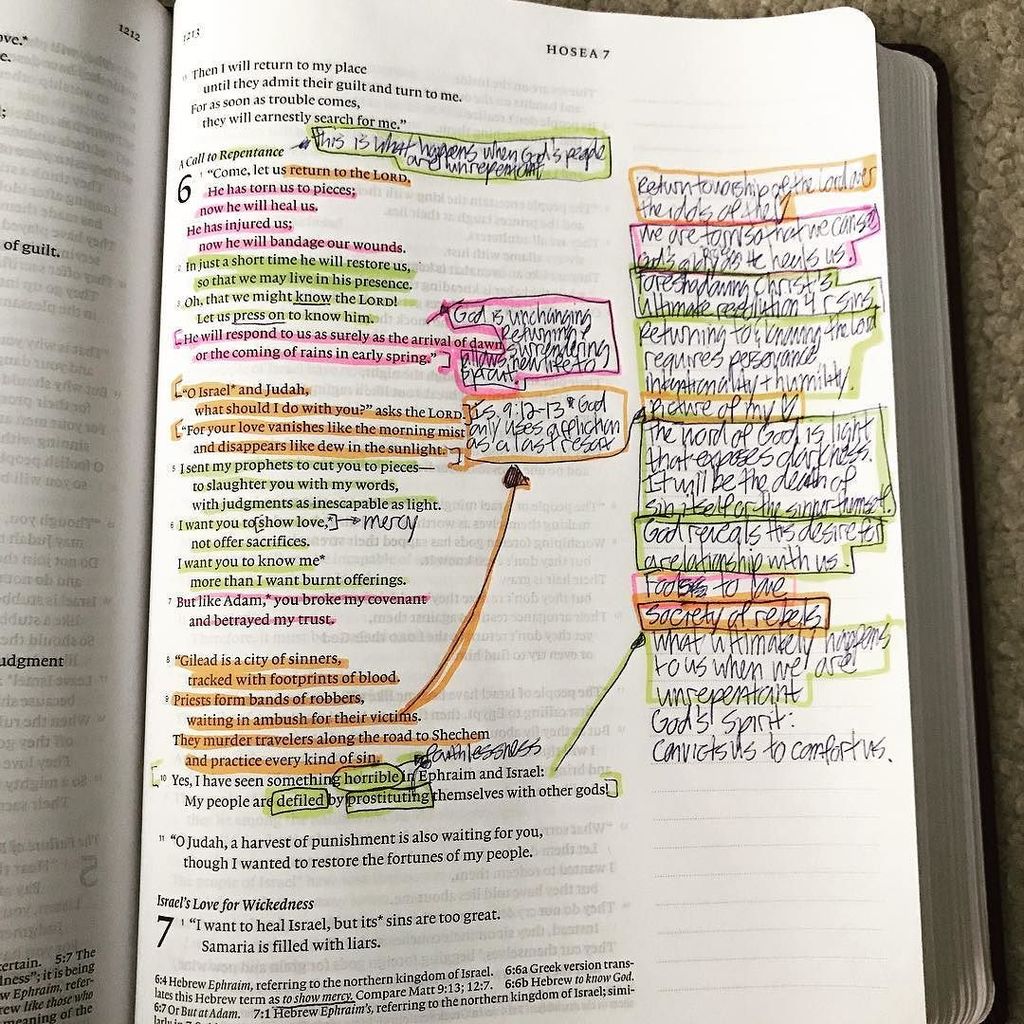 1212
ove.*
e.
of guilt.
udgment
5
ertain. 5:7 The
lness"; it is being
w Ephraim, refer-
rew like those who
meaning of the
1213
HOSEA 7
15 Then I will return to my place
until they admit their guilt and turn to me.
For as soon as trouble comes,
they will earnestly search for me."
this is what happens when God's people
are unrepentant
A Call to Repentance
6 1 "Come, let us return to the LORD.
He has torn us to pieces;
now he will heal us.
He has injured us;
now he will bandage our wounds.
2 In just a short time he will restore us,
so that we may live in his presence.
3 Oh, that we might know the LORD!
Let us press on to know him.
He will respond to us as surely as the arrival of dawn
or the coming of rains in early spring."
God is unchanging
returning &
surrendering
allows new life to
sprout.
4 "O Israel* and Judah,
what should I do with you?" asks the LORD.
"For your love vanishes like the morning mist
and disappears like dew in the sunlight.
Is. 9:12-13 * God
only uses affliction
as a last resort
5 I sent my prophets to cut you to pieces—
to slaughter you with my words,
with judgments as inescapable as light.
6 I want you to show love,* → mercy
not offer sacrifices.
I want you to know me*
more than I want burnt offerings.
7 But like Adam,* you broke my covenant
and betrayed my trust.
8 "Gilead is a city of sinners,
tracked with footprints of blood.
9 Priests form bands of robbers,
waiting in ambush for their victims.
They murder travelers along the road to Shechem
and practice every kind of sin.
faithlessness
10 Yes, I have seen something horrible in Ephraim and Israel:
My people are defiled by prostituting themselves with other gods!
11 "O Judah, a harvest of punishment is also waiting for you,
though I wanted to restore the fortunes of my people.
Israel's Love for Wickedness
7 1 "I want to heal Israel, but its* sins are too great.
Samaria is filled with liars.
6:4 Hebrew Ephraim, referring to the northern kingdom of Israel. 6:6a Greek version trans-
lates this Hebrew term as to show mercy. Compare Matt 9:13; 12:7. 6:6b Hebrew to know God.
6:7 Or But at Adam. 7:1 Hebrew Ephraim's, referring to the northern kingdom of Israel; simi-
larly in 7:8
Return to worship of the Lord over
the idols of the
We are torn so that we can see
God's as He heals us.
foreshadowing Christ's
ultimate resolution 4 sins.
Returning to & knowing the Lord
requires perseverance
intentionality + humility.
Picture of my
the word of God is light
that exposes darkness.
It will be the death of
sin itself or the sinner themself.
God reveals His desire for
a relationship with us.
Fools to love
Society of rebels
What ultimately happens
to us when we are
unrepentant
God's Spirit:
Convicts us to comfort us.